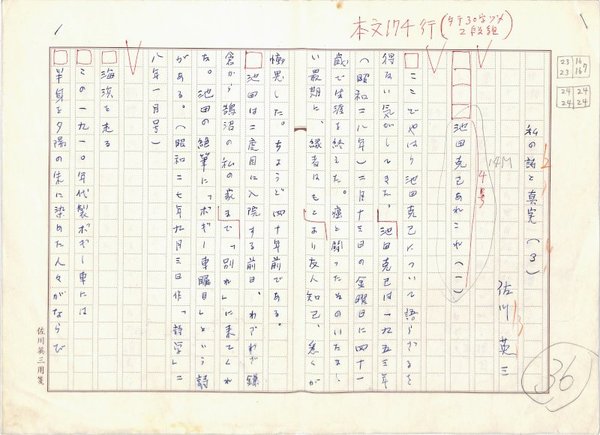 本文174行(タテ30字ヅメ 2段組)
23 16
23 167
24 24
24 24
私の詩と真実(3)
2
14M
佐川英三
13
池田克己あれこれ(一)
4号
ここでやはり池田克己について語らざるを
得ない気がしてきた。池田克己は一九五三年
(昭和二八年)二月十三日の金曜日に四十一
歳で生涯を終えた。癌と闘ったそのいたまし
い最期に、縁者はもとより友人知己、悉くが
慟哭した。ちょうど四十年前である。
池田は二度目に入院する前日、わざわざ鎌
倉から鵠沼の私の家まで「別れ」に来てくれ
た。池田の絶筆に「ボギー車曜日」という詩
がある。(昭和二七年九月三日作「詩学」二
八年一月号)
海浜を走る
この一九一〇年代製ボギー車には
半身を夕陽の朱に染めた人々がならび
36
佐川英三用箋